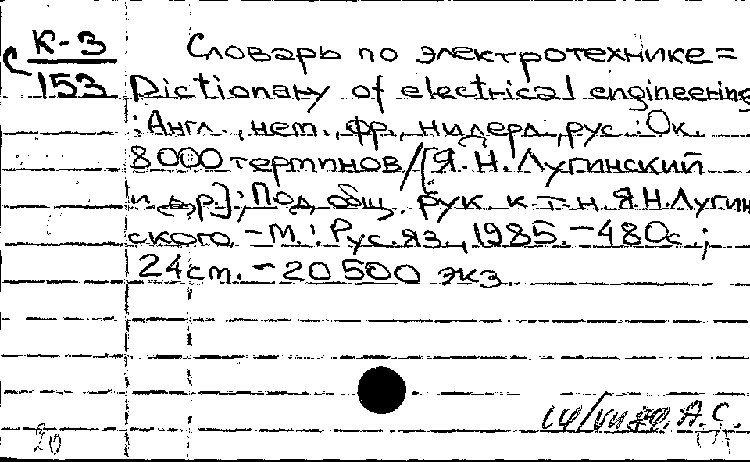 К-3
с 153
Словарь по электротехнике =
Dictionary of electrical engineering
: Англ., нем., фр., нидерл., рус. : Ок.
8000 терминов / [Я. Н. Лугинский
и др.]; Под общ. рук. к.т.н. Я.Н. Лугин
ского. – М.: Рус. яз., 1985. – 480 с.;
24 см. – 20 500 экз.
А.С.
20